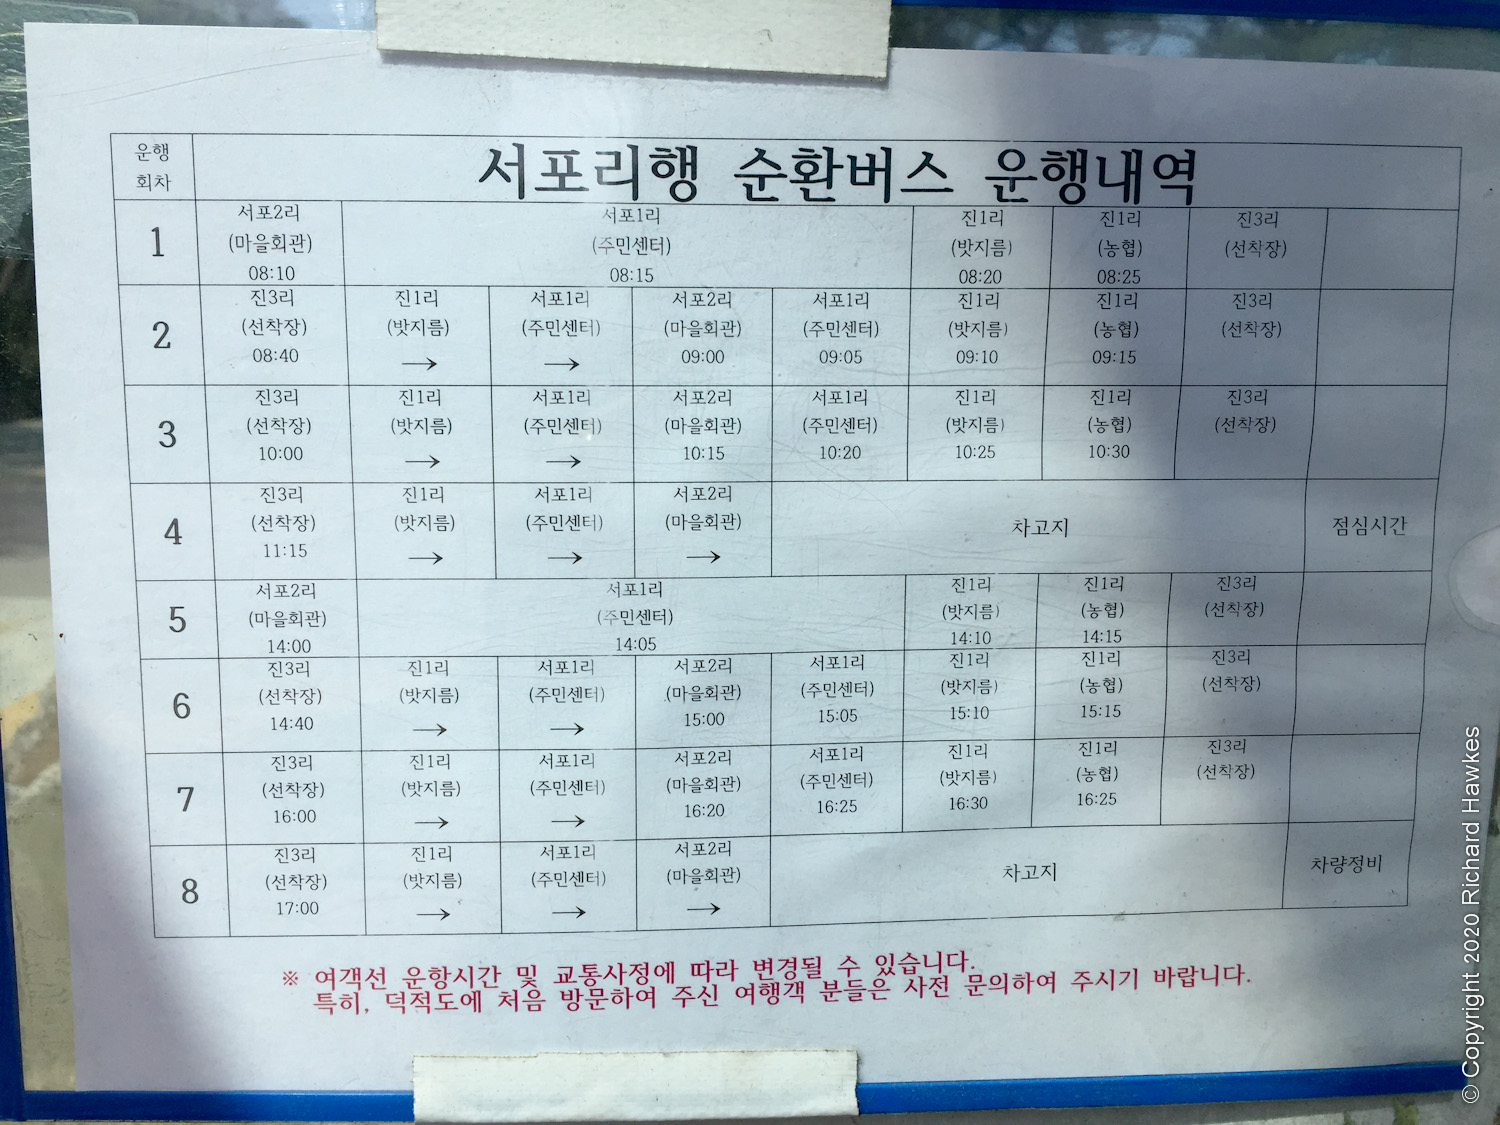 운행
회차
서포리행 순환버스 운행내역
1
서포2리
(마을회관)
08:10
서포1리
(주민센터)
08:15
진1리
(밧지름)
08:20
진1리
(농협)
08:25
진3리
(선착장)
2
진3리
(선착장)
08:40
진1리
(밧지름)
→
서포1리
(주민센터)
→
서포2리
(마을회관)
09:00
서포1리
(주민센터)
09:05
진1리
(밧지름)
09:10
진1리
(농협)
09:15
진3리
(선착장)
3
진3리
(선착장)
10:00
진1리
(밧지름)
→
서포1리
(주민센터)
→
서포2리
(마을회관)
10:15
서포1리
(주민센터)
10:20
진1리
(밧지름)
10:25
진1리
(농협)
10:30
진3리
(선착장)
4
진3리
(선착장)
11:15
진1리
(밧지름)
→
서포1리
(주민센터)
→
서포2리
(마을회관)
→
차고지
점심시간
5
서포2리
(마을회관)
14:00
서포1리
(주민센터)
14:05
진1리
(밧지름)
14:10
진1리
(농협)
14:15
진3리
(선착장)
6
진3리
(선착장)
14:40
진1리
(밧지름)
→
서포1리
(주민센터)
→
서포2리
(마을회관)
15:00
서포1리
(주민센터)
15:05
진1리
(밧지름)
15:10
진1리
(농협)
15:15
진3리
(선착장)
7
진3리
(선착장)
16:00
진1리
(밧지름)
→
서포1리
(주민센터)
→
서포2리
(마을회관)
16:20
서포1리
(주민센터)
16:25
진1리
(밧지름)
16:30
진1리
(농협)
16:25
진3리
(선착장)
8
진3리
(선착장)
17:00
진1리
(밧지름)
→
서포1리
(주민센터)
→
서포2리
(마을회관)
→
차고지
차량정비
※ 여객선 운항시간 및 교통사정에 따라 변경될 수 있습니다.
특히, 덕적도에 처음 방문하여 주신 여행객 분들은 사전 문의하여 주시기 바랍니다.
© Copyright 2020 Richard Hawkes